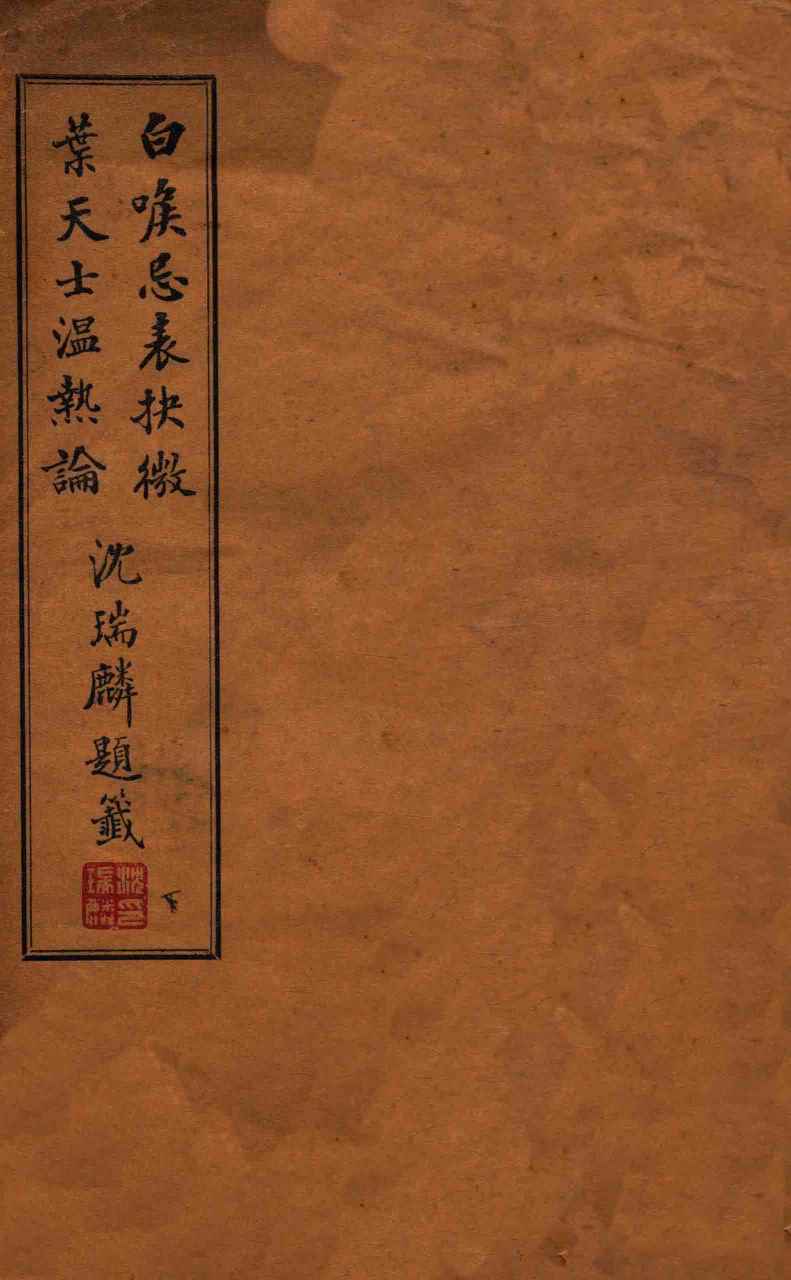 白喉忌表抉微
葉天士温熱論
沈瑞麟題籤
沈印瑞麟